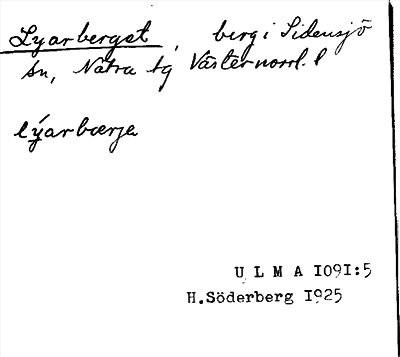 Lyarberget, berg i Sidensjö
sn, Nätra tg Västernorrl. l
lý̄arbærja
U L M A I09I:5
H.Söderberg I925